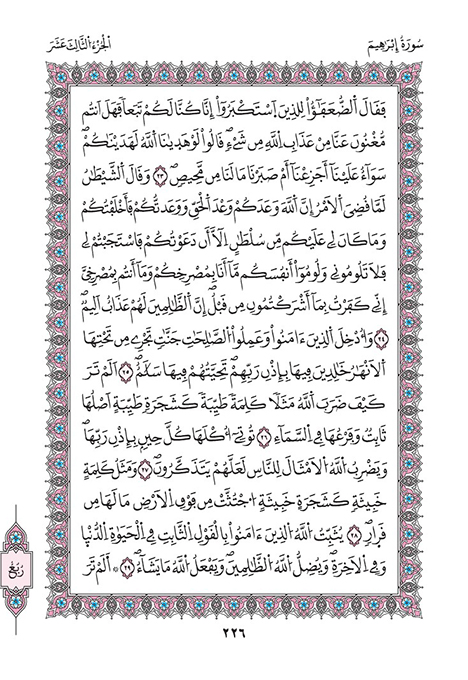 سُورَةُ إِبْرَاهِيمَ
الْجُزْءُ الثَّالِثَ عَشَرَ
فَقَالَ اَ۬لضُّعَفَٰٓؤُاْ لِلذِينَ اَ۪سْتَكْبَرُوٓاْ إِنَّا كُنَّا لَكُمْ تَبَعاً فَهَلَ اَنتُم
مُّغْنُونَ عَنَّا مِنْ عَذَابِ اِ۬للَّهِ مِن شَےْءٖۖ قَالُواْ لَوْ هَدَيٰنَا اَ۬للَّهُ لَهَدَيْنَٰكُمْۖ
سَوَآءٌ عَلَيْنَآ أَجَزِعْنَآ أَمْ صَبَرْنَا مَا لَنَا مِن مَّحِيصٖۖ ٢٣ وَقَالَ اَ۬لشَّيْطَٰنُ
لَمَّا قُضِيَ اَ۬لَامْرُ إِنَّ اَ۬للَّهَ وَعَدَكُمْ وَعْدَ اَ۬لْحَقِّ وَوَعَدتُّكُمْ فَأَخْلَفْتُكُمْ
وَمَا كَانَ لِي عَلَيْكُم مِّن سُلْطَٰنٍ اِلَّآ أَن دَعَوْتُكُمْ فَاسْتَجَبْتُمْ لِي
فَلَا تَلُومُونِي وَلُومُوٓاْ أَنفُسَكُم مَّآ أَنَا بِمُصْرِخِكُمْ وَمَآ أَنتُم بِمُصْرِخِيَّ
إِنِّي كَفَرْتُ بِمَآ أَشْرَكْتُمُونِ مِن قَبْلُۖ إِنَّ اَ۬لظَّٰلِمِينَ لَهُمْ عَذَابٌ اَلِيمٞۖ
٢٤ وَأُدْخِلَ اَ۬لذِينَ ءَامَنُواْ وَعَمِلُواْ اُ۬لصَّٰلِحَٰتِ جَنَّٰتٖ تَجْرِي مِن تَحْتِهَا
اَ۬لَانْهَٰرُ خَٰلِدِينَ فِيهَا بِإِذْنِ رَبِّهِمْۖ تَحِيَّتُهُمْ فِيهَا سَلَٰمٌۖ ٢٥ اَلَمْ تَرَ
كَيْفَ ضَرَبَ اَ۬للَّهُ مَثَلاٗ كَلِمَةٗ طَيِّبَةٗ كَشَجَرَةٖ طَيِّبَةٍ اَصْلُهَا
ثَابِتٞ وَفَرْعُهَا فِي اِ۬لسَّمَآءِ ٢٦ تُوتِےٓ أُكْلَهَا كُلَّ حِينِۢ بِإِذْنِ رَبِّهَاۖ
وَيَضْرِبُ اُ۬للَّهُ اُ۬لَامْثَالَ لِلنَّاسِ لَعَلَّهُمْ يَتَذَكَّرُونَۖ ٢٧ وَمَثَلُ كَلِمَةٍ
خَبِيثَةٖ كَشَجَرَةٍ خَبِيثَةٍ اِ۟جْتُثَّتْ مِن فَوْقِ اِ۬لَارْضِ مَا لَهَا مِن
قَرَارٖۖ ٢٨ يُثَبِّتُ اُ۬للَّهُ اُ۬لذِينَ ءَامَنُواْ بِالْقَوْلِ اِ۬لثَّابِتِ فِي اِ۬لْحَيَوٰةِ اِ۬لدُّنْيَا
وَفِي اِ۬لَاخِرَةِۖ وَيُضِلُّ اُ۬للَّهُ اُ۬لظَّٰلِمِينَۖ وَيَفْعَلُ اُ۬للَّهُ مَا يَشَآءُۖ ٢٩ ۞ أَلَمْ تَرَ
رُبُعٌ
٢٢٦